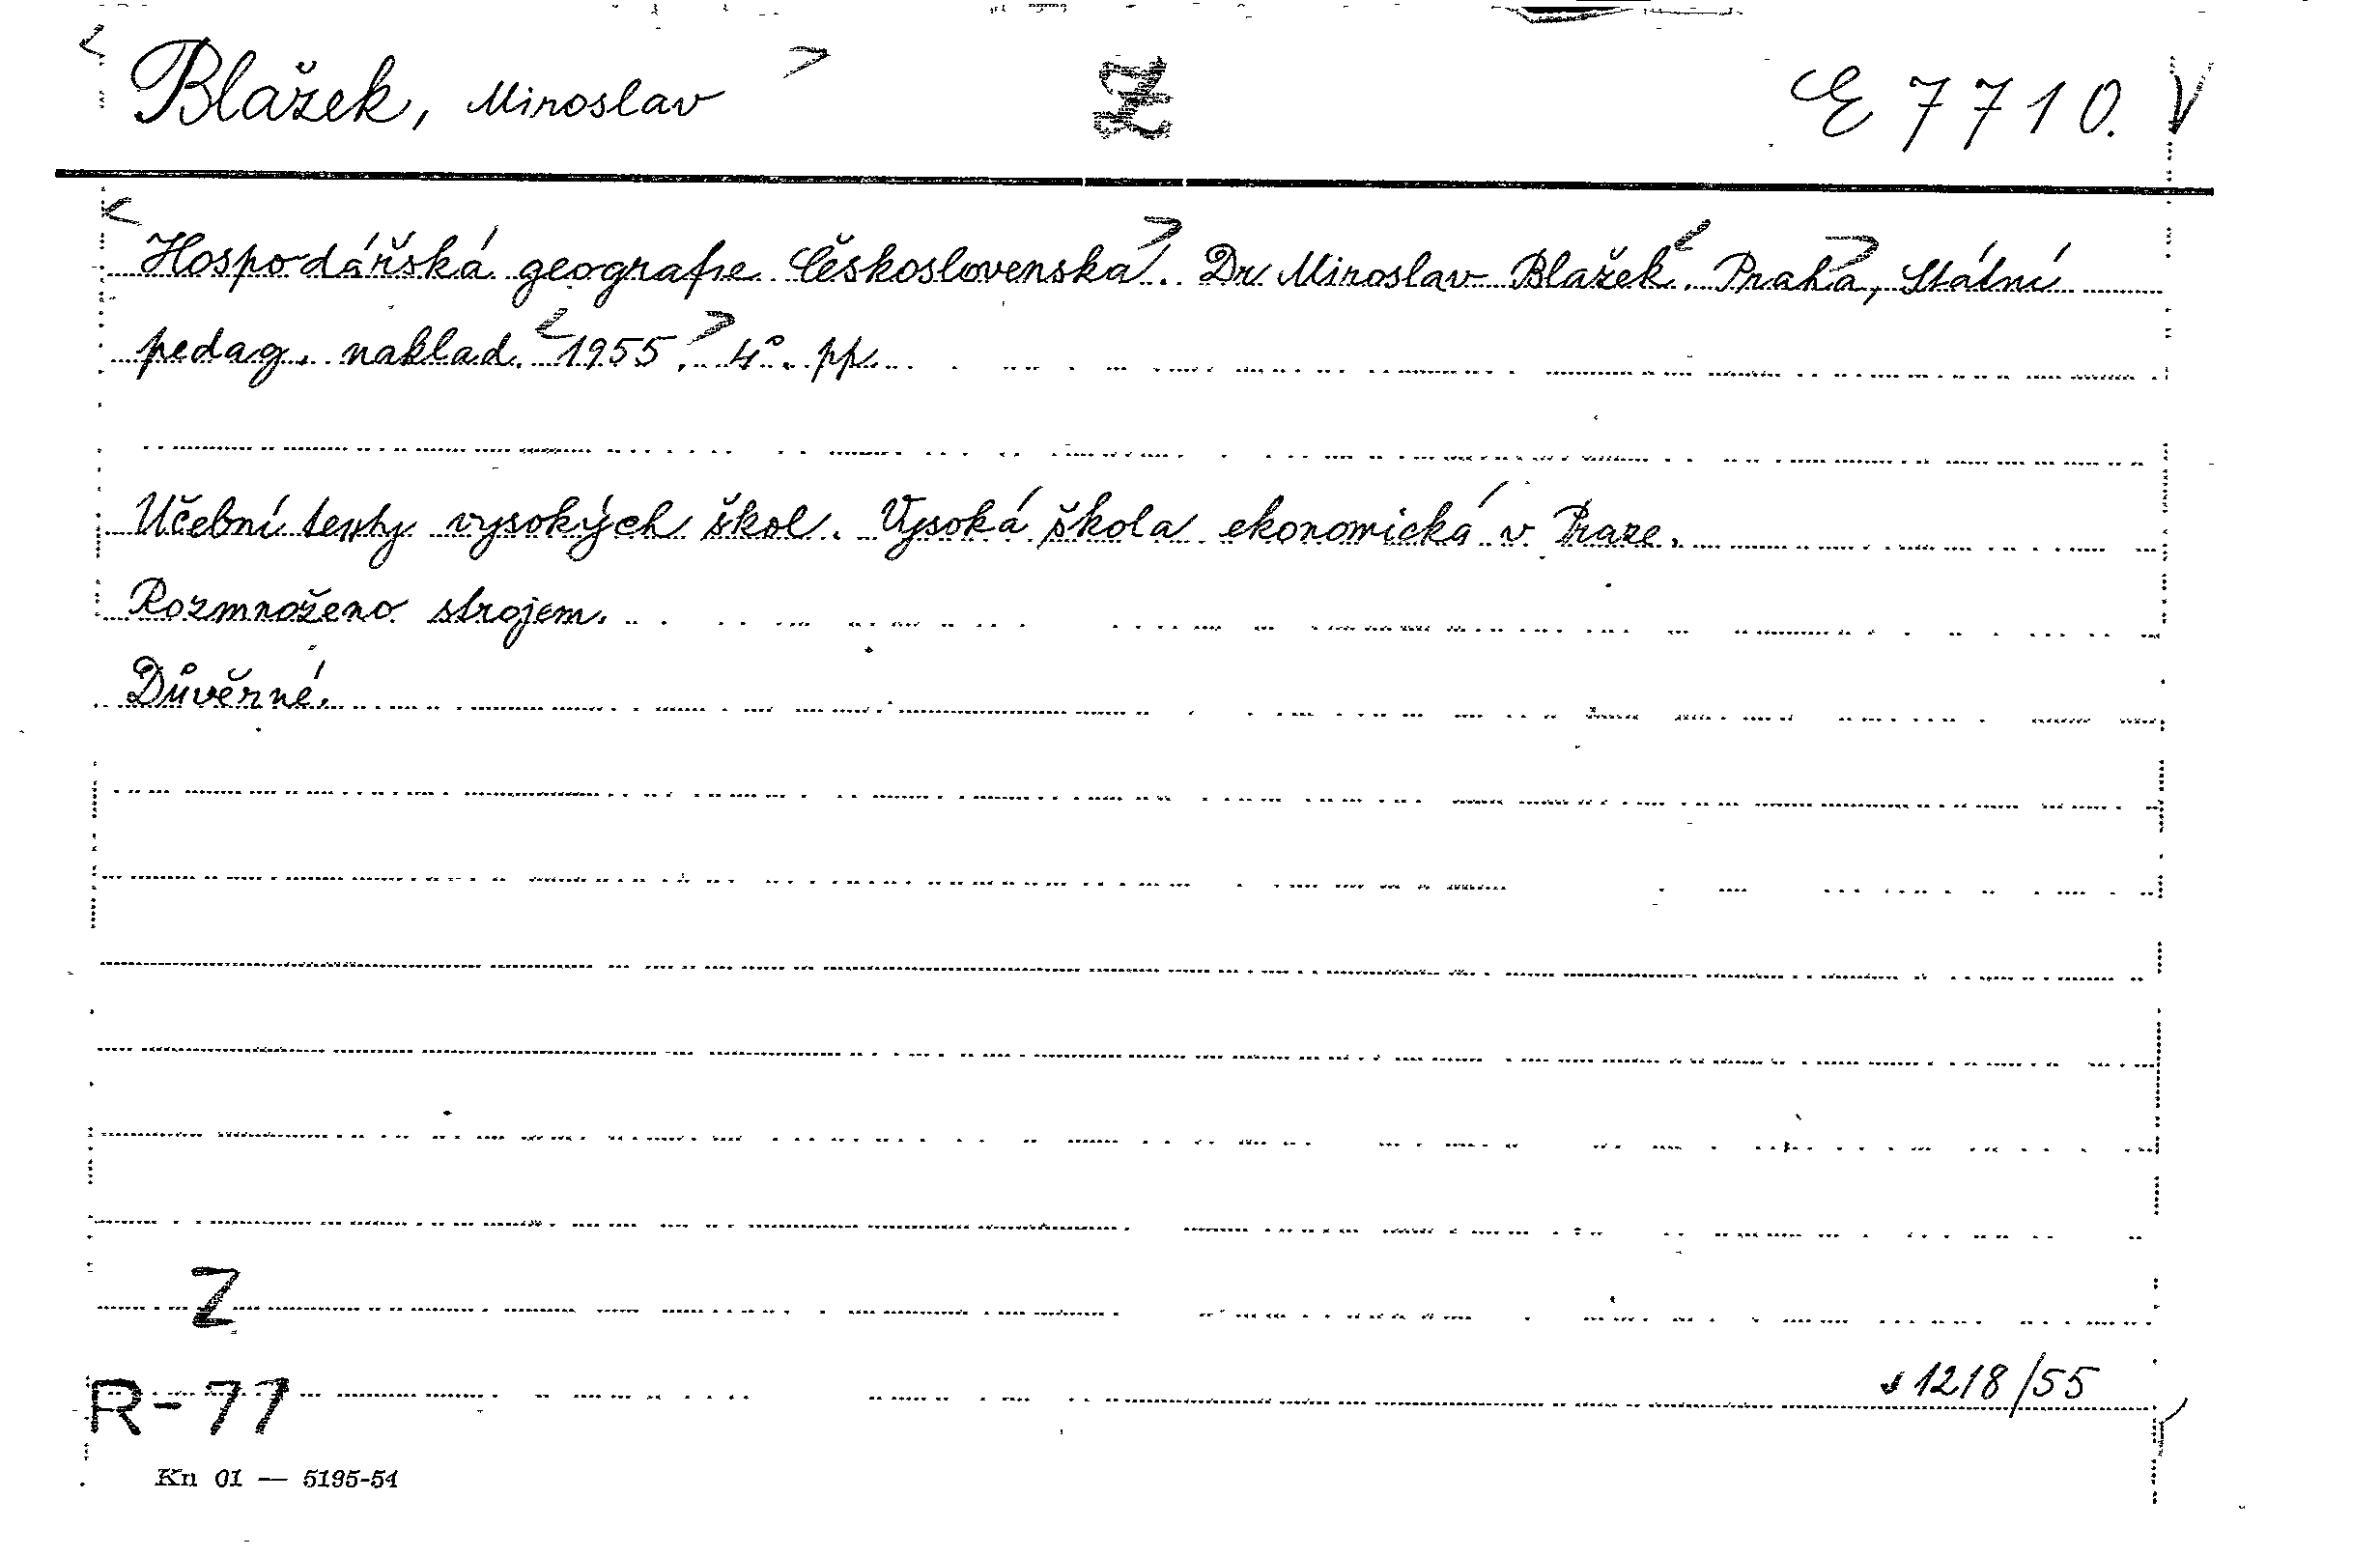 Blažek, Miroslav Z E 7710. V
Hospodářská geografie Československa. Dr Miroslav Blažek. Praha, Státní
pedag. naklad. 1955. 4°. pp.
Učební texty vysokých škol. Vysoká škola ekonomická v Praze.
Rozmnoženo strojem.
Důvěrné.
Z
1218/55
R-77
Kn 01 — 5195-54